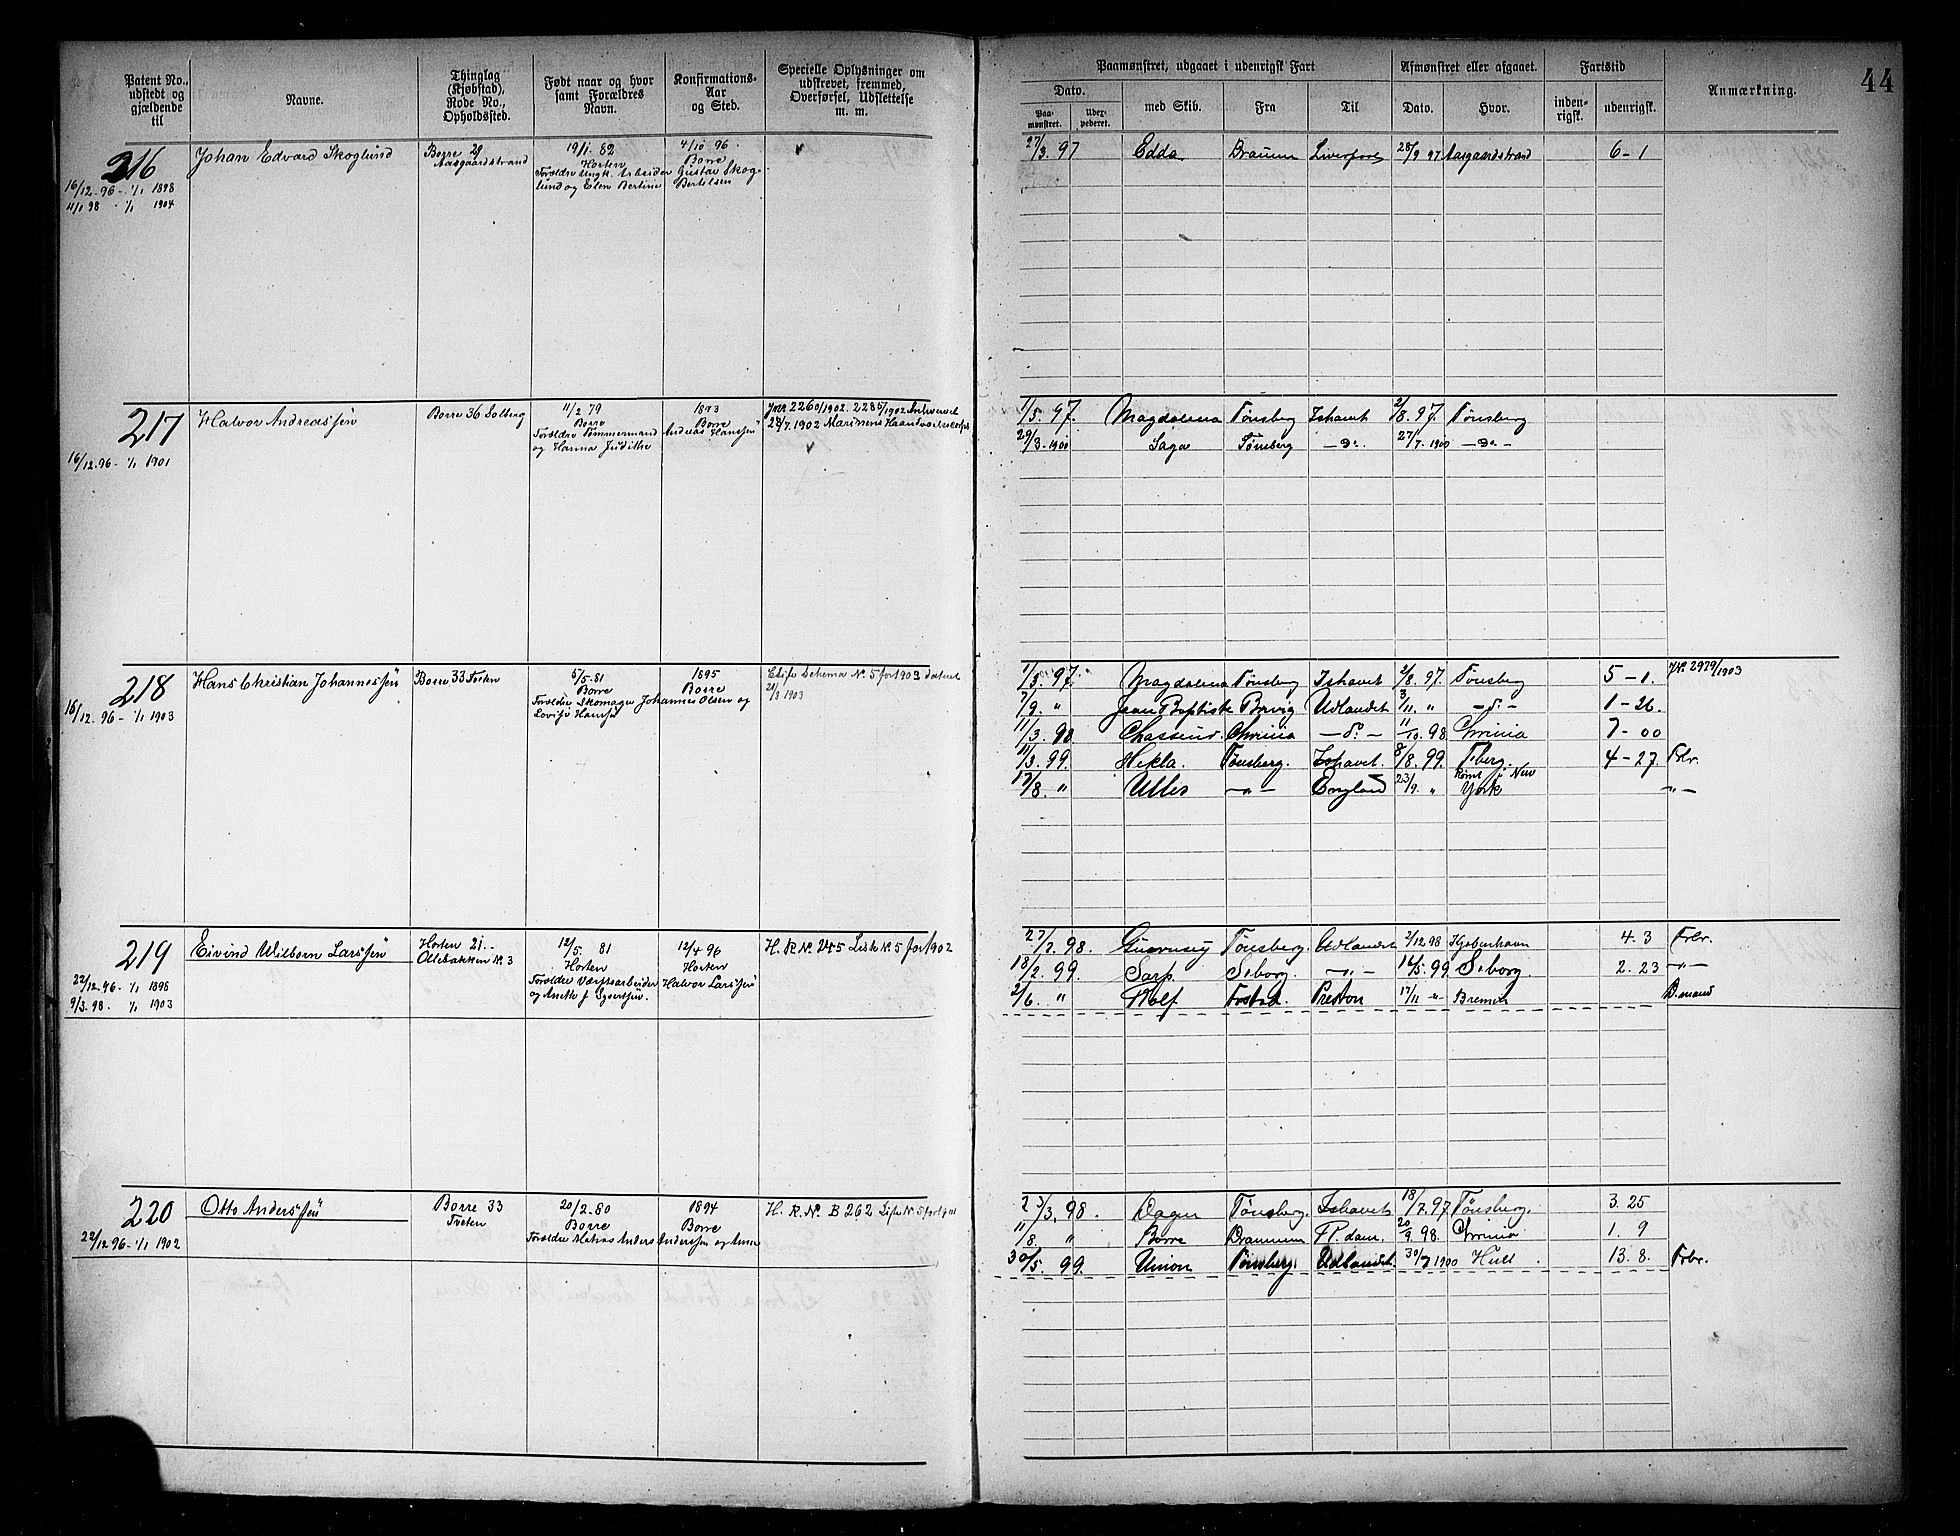 44
Patent No., udstedt og gjældende til
Navne.
Thinglag (Kjøbstad), Rode No., Opholdssted.
Født naar og hvor samt Forældres Navn.
Konfirmations-Aar og Sted.
Specielle Oplysninger om udskrevet, fremmed, Overførsel, Udslettelse m. m.
Paamønstret, udgaaet i udenrigsk Fart
Afmønstret eller afgaaet.
Fartstid
Anmærkning.
Dato.
med Skib.
Fra
Til
Dato.
Hvor.
inden-rigsk.
udenrigsk.
Paa-mønstret.
216
16/12.96 - 1/1 1898
11/1 98 - 1/1 1904
Johan Edvard Skoglund
Borre 29
Aasgaardstrand
19/11.82
Horten
4/10 96
Borre
Forældre Ungk. Arbeider Gustav Skog-
lund og Elen Bertine Bertelsen
27/3.97 Edda Drammen Liverpool 28/9 97 Aasgaardstrand 6-1
217
16/12.96 - 1/1 1901
Halvor Andreassen
Borre 36 Solberg
11/2 79
Borre
1893
Borre
Forældre Tømmermand Andreas Hanssen
og Hanna Judithe
Jnr 2260/1902. 2285/1902
28/7.1902 Marinens
1/5.97. Magdalena Tønsberg Ishavet 2/8.97. Tønsberg
29/3.1900 Saga Tønsberg -Do- 27/7.1900 -Do-
218
16/12.96 - 1/1 1903
Hans Christian Johannessen
Borre 33 Tveten
5/5.81
Borre
1895
Borre
Forældre Skomager Johannes Olsen og
Lovise
Schema N. 5 for 1903 dateret
21/3 1903
1/5.97. Magdalena Tønsberg Ishavet 2/8.97. Tønsberg 5-1. JNr. 2979/1903
7/9. " Jean Baptiste Udlandet 3/11. " -do- 1-26.
11/3.98 Chrinia -do- 11/10.98. Chrinia 7-00
11/3.99. Hekla. Tønsberg. Ishavet 8/8.99. T.berg. 4-27 Frbr.
17/8. " -"- England 23/9. " Rømt i New York -"-
219
22/12.96 - 1/1 1898
9/3.98. 1/1 1903
Eivind Wilborn Larssen
Horten 21.-
Ollebakken N. 3
12/5. 81
Horten
12/4 96
Horten
Forældre Værftsarbeider Halvor Larssen
og Anette f. Syvertsen.
H. R. N. 245 Liste N. 5 for 1902
27/2.98. Guernsey Tønsberg. Udlandet 2/12.98 Kjøbenhavn 4.3 Frbr.
18/2.99. Sarp. S.borg. -"- 16/5.99. S.borg. 2.23 -"-
2/6. " Rolf Fr.stad. Preston 17/11 -"- Bremen
220
22/12.96 - 1/1 1902
Otto Anderssen
Borre 33
Tveten
20/2.80
Borre
1894
Borre
Forældre Anders Anderssen og Anne
H. R. N. B 262 Liste N. 5 for 1901
23/3.98. Dagny Tønsberg. Ishavet 18/7.97 Tønsberg. 3.25
11/8. " Borre Drammen R.dam. 20/9.98. Chrinia 1.9
30/5.99. Union Tønsberg. Udlandet. 30/7 1900 Hull 13.8. Frbr.